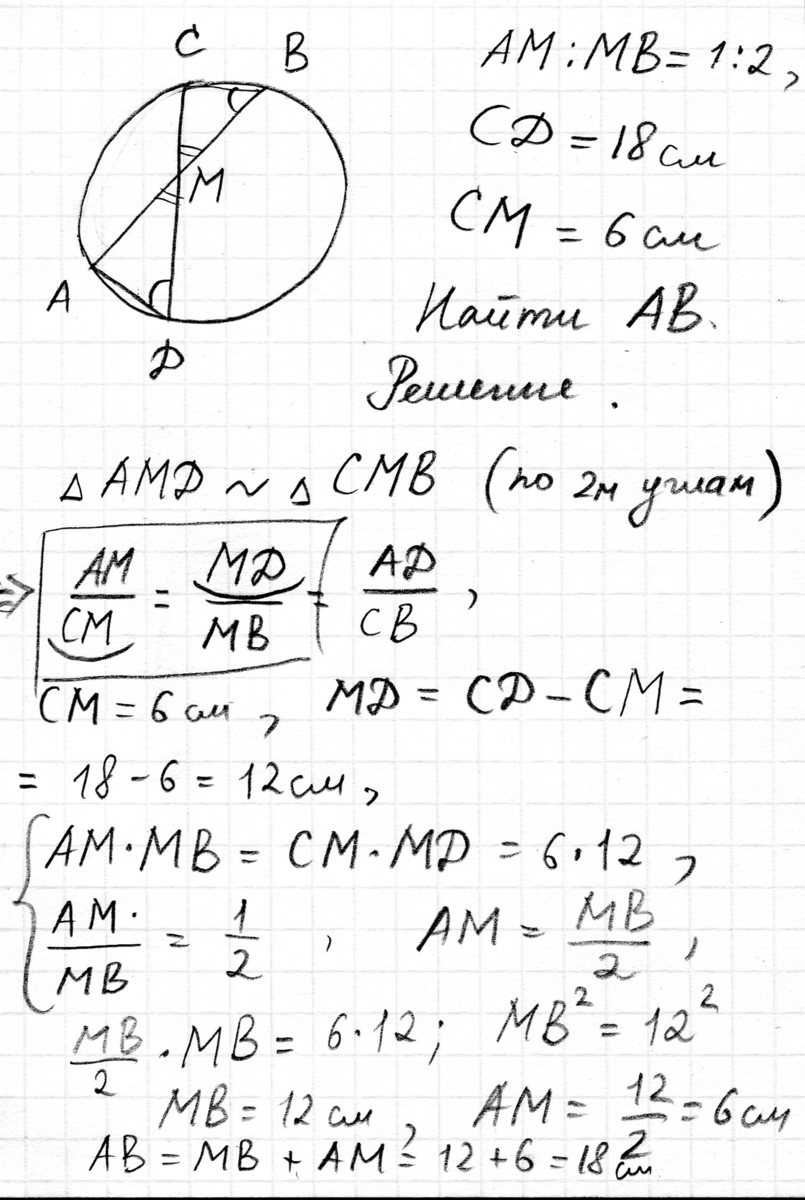 C B
M
A
D
AM : MB = 1:2,
CD = 18 см
CM = 6 см
Найти AB.
Решение.
△ AMD ~ △ CMB (по 2м углам)
⇒ AM/CM = MD/MB = AD/CB ,
CM = 6 см , MD = CD - CM =
= 18 - 6 = 12 см,
{ AM · MB = CM · MD = 6 · 12 ,
AM·/MB = 1/2 , AM = MB/2 ,
MB/2 · MB = 6 · 12 ; MB² = 12²
MB = 12 см , AM = 12/2 = 6 см
AB = MB + AM = 12 + 6 = 18 см